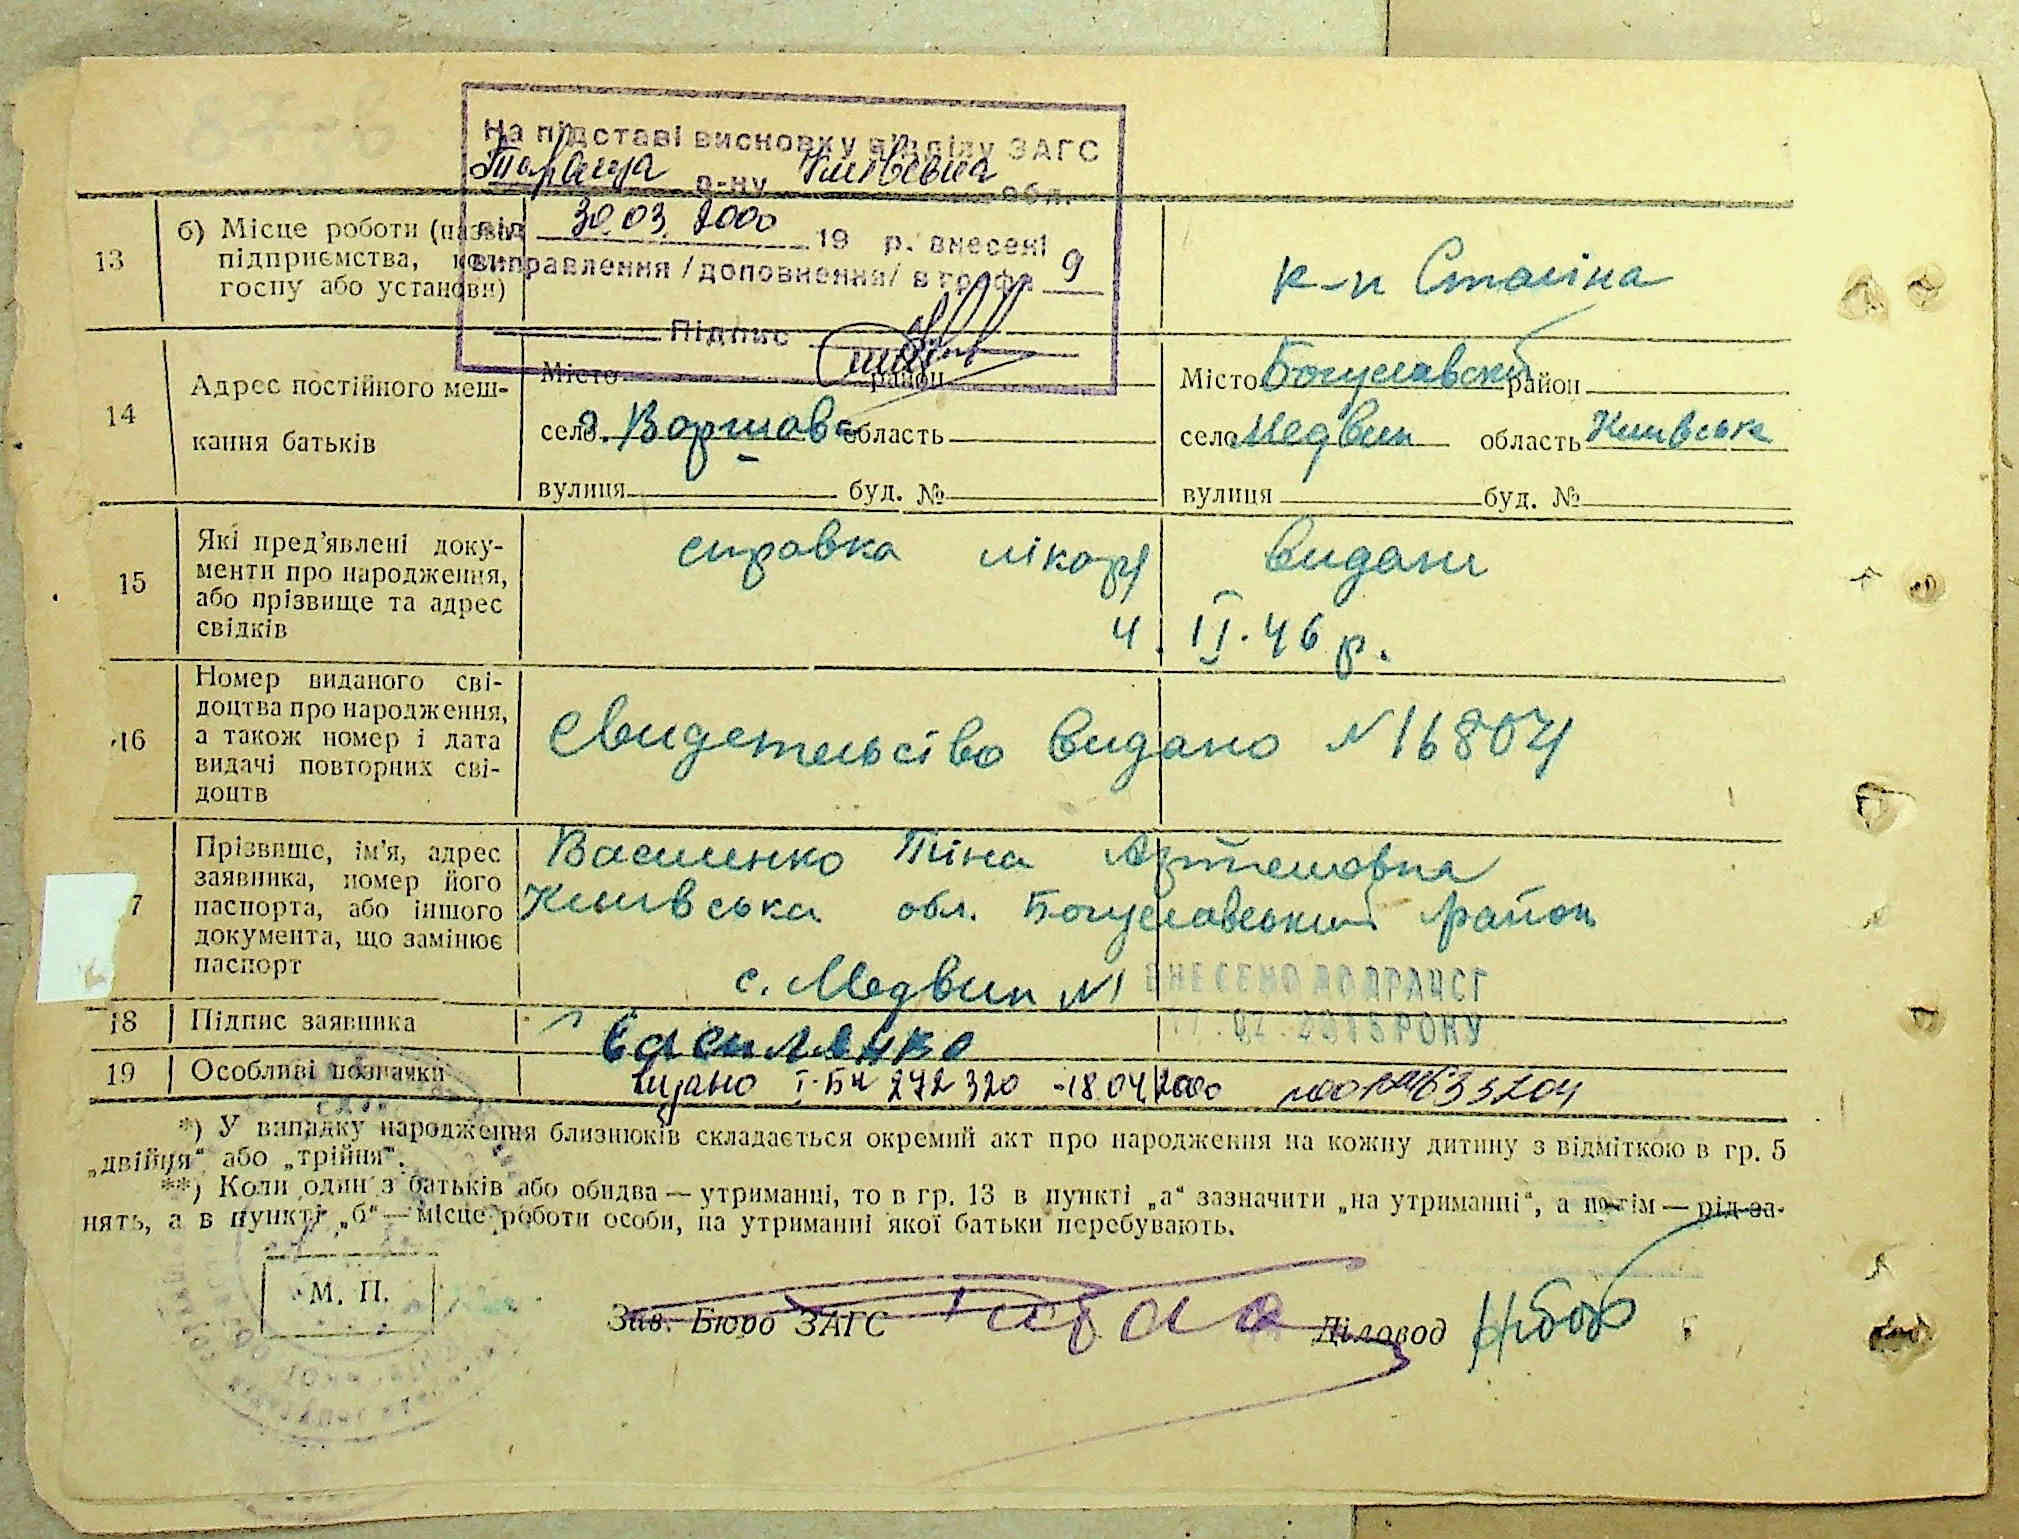 На підставі висновку відділу ЗАГС
Тараща р-ну Київська обл.
від 30.03.2000 19 р. внесені
виправлення /доповнення/ в графа 9
Підпис
13 б) Місце роботи (назва
підприємства, кол-
госпу або установи)
к-п Сталіна
14 Адрес постійного меш-
кання батьків
Місто район
село г. Варшава область
вулиця буд. №
Місто Богуславский район
село Медвин область Київська
вулиця буд. №
15 Які пред’явлені доку-
менти про народження,
або прізвище та адрес
свідків
справка лікаря видана
4. II. 46 р.
16 Номер виданого сві-
доцтва про народження,
а також номер і дата
видачі повторних сві-
доцтв
Свидетельсїво видано № 16804
7 Прізвище, ім’я, адрес
заявника, номер його
паспорта, або іншого
документа, що замінює
паспорт
Василенко Тіна Артемовна
Київська обл. Богуславський район
с. Медвин №1
ВНЕСЕНО ДО ДРАЦСГ
РОКУ
18 Підпис заявника
Василенко
19 Особливі позначки
видано І-БК 272320 -18.04.2000
*) У випадку народження близнюків складається окремий акт про народження на кожну дитину з відміткою в гр. 5
„двійня“ або „трійня“.
**) Коли один з батьків або обидва — утриманці, то в гр. 13 в пункті „а“ зазначити „на утриманні“, а потім — рід за-
нять, а в пункті „б“ — місце роботи особи, на утриманні якої батьки перебувають.
М. П.
Зав. Бюро ЗАГС
Діловод